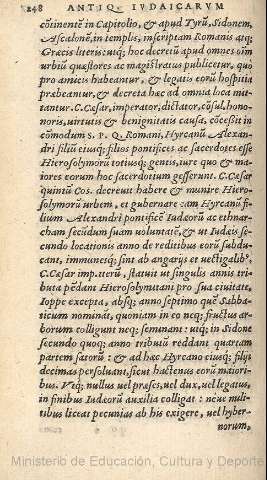 248 ANTIQ. IVDAICARVM
cōtinentē in Capitolio, & apud Tyrū, Sidonem,
Ascalonē, in templis, inscriptam Romanis atq;
Græcis literis: utiq; hoc decretū apud omnes oīm
urbiū quæstores ac magistratus publicetur, quo
pro amicis habeantur, & legatis eorū hospitia
præbeantur, & decreta hæc ad omnia loca mit
tantur. C. Cæsar, imperator, dictator, cōsul, hono-
noris, uirtutis & benignitatis causa, cōcessit in
cōmodum S. P. Q. Romani, Hyrcanū Alexan-
dri filiū eiusq; filios pontifices ac sacerdotes esse
Hierosolymorū totiusq; gentis, iure quo & ma-
iores eorum hoc sacerdotium gesserunt. C. Cæsar
quintū Cos. decreuit habere & munire Hiero-
solymorū urbem, et gubernare eam Hyrcanū fi-
lium Alexandri pontificē Iudæorū ac ethnar-
cham secūdum suam uoluntatē, & ut Iudæis se-
cundo locationis anno de reditibus eorū subdu-
cant, immunesq; sint ab angarijs et uectigalib⁹.
C. Cæsar imp. iterū, statuit ut singulis annis tri-
buta pēdant Hierosolymitani pro sua ciuitate,
Ioppe excepta, absq; anno septimo quē Sabba-
ticum nomināt, quoniam in eo neq; fructus ar-
borum colligunt neq; seminant: utiq; in Sidone
secundo quoq; anno tributū reddant quartam
partem satorū: & ad hæc Hyrcano eiusq; filijs
decimas persoluant, sicut hactenus eorū maiori-
bus. Vtq; nullus uel præses, uel dux, uel legatus,
in finibus Iudæorū auxilia colligat: neue mili-
tibus liceat pecunias ab his exigere, uel hyber-
norum,
Ministerio de Educación, Cultura y Deporte